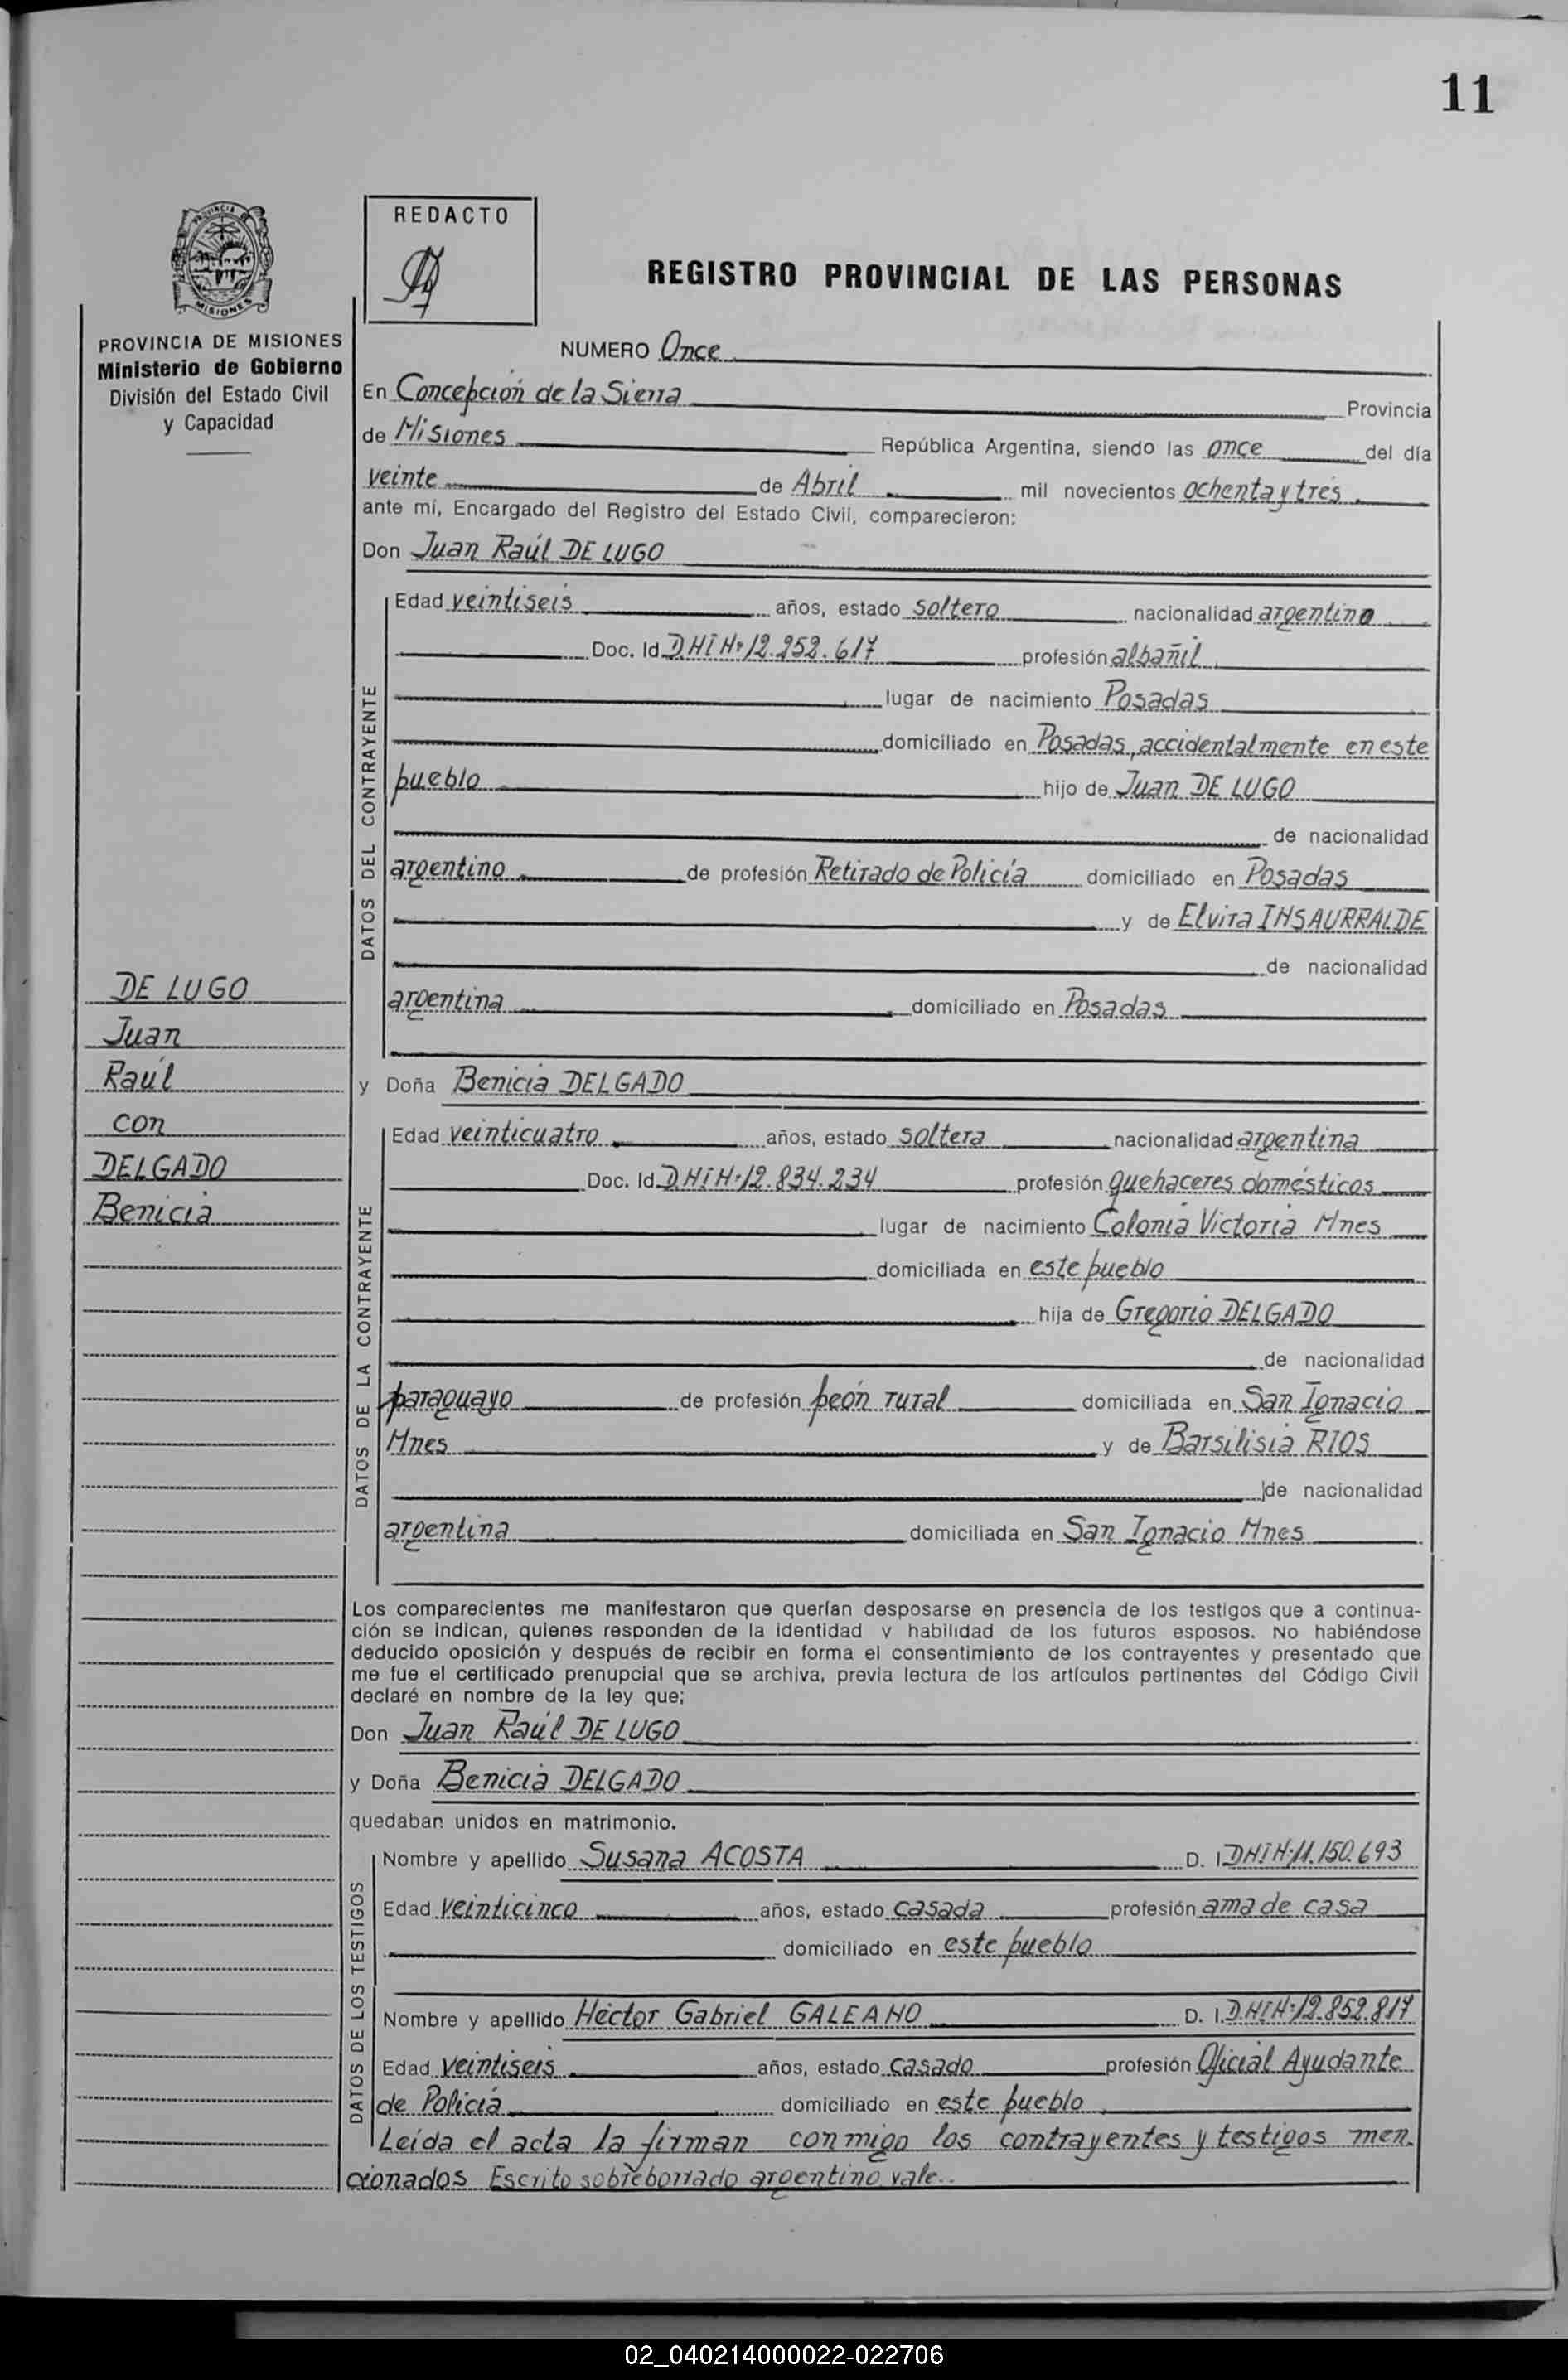 11
PROVINCIA DE
MISIONES
PROVINCIA DE MISIONES
Ministerio de Gobierno
División del Estado Civil
y Capacidad
REDACTO
REGISTRO PROVINCIAL DE LAS PERSONAS
NUMERO Once
En Concepción de la Sierra Provincia
de Misiones República Argentina, siendo las once del día
veinte de Abril mil novecientos ochenta y tres
ante mí, Encargado del Registro del Estado Civil, comparecieron:
Don Juan Raúl DE LUGO
DATOS DEL CONTRAYENTE
Edad veintiseis años, estado soltero nacionalidad argentino
Doc. Id. DNI Nº 12.252.617 profesión albañil
lugar de nacimiento Posadas
domiciliado en Posadas, accidentalmente en este
pueblo hijo de Juan DE LUGO
de nacionalidad
argentino de profesión Retirado de Policía domiciliado en Posadas
y de Elvira INSAURRALDE
de nacionalidad
argentina domiciliado en Posadas
DE LUGO
Juan
Raúl
con
DELGADO
Benicia
y Doña Benicia DELGADO
DATOS DE LA CONTRAYENTE
Edad veinticuatro años, estado soltera nacionalidad argentina
Doc. Id. DNI Nº 12.834.234 profesión quehaceres domésticos
lugar de nacimiento Colonia Victoria Mnes
domiciliada en este pueblo
hija de Gregorio DELGADO
de nacionalidad
paraguayo de profesión peón rural domiciliada en San Ignacio
Mnes y de Barsilisia RIOS
de nacionalidad
argentina domiciliada en San Ignacio Mnes
Los comparecientes me manifestaron que querían desposarse en presencia de los testigos que a continua-
ción se indican, quienes responden de la identidad y habilidad de los futuros esposos. No habiéndose
deducido oposición y después de recibir en forma el consentimiento de los contrayentes y presentado que
me fue el certificado prenupcial que se archiva, previa lectura de los artículos pertinentes del Código Civil
declaré en nombre de la ley que;
Don Juan Raúl DE LUGO
y Doña Benicia DELGADO
quedaban unidos en matrimonio.
DATOS DE LOS TESTIGOS
Nombre y apellido Susana ACOSTA D. I. DNI Nº 11.150.693
Edad veinticinco años, estado casada profesión ama de casa
domiciliado en este pueblo
Nombre y apellido Héctor Gabriel GALEANO D. I. DNI Nº 12.852.817
Edad veintiseis años, estado casado profesión Oficial Ayudante
de Policía domiciliado en este pueblo
Leída el acta la firman conmigo los contrayentes y testigos men-
cionados Escrito sobreborrado argentino vale.
02_040214000022-022706